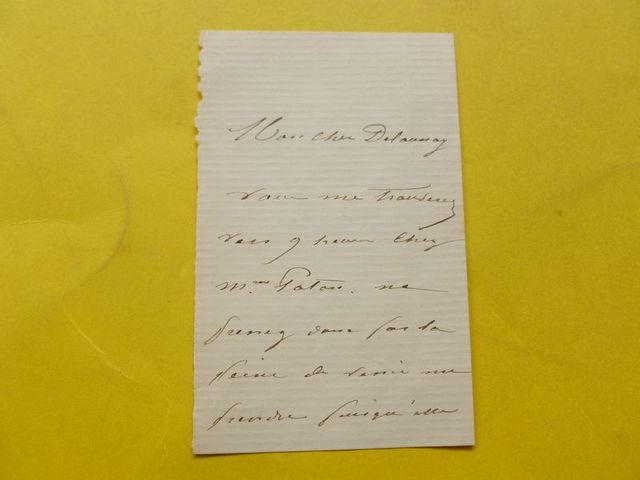 Mon cher Delaunay
vous me trouverez
vers 9 heures chez
Mme Paton. ne
prenez donc pas la
peine de venir me
prendre puisqu'elle